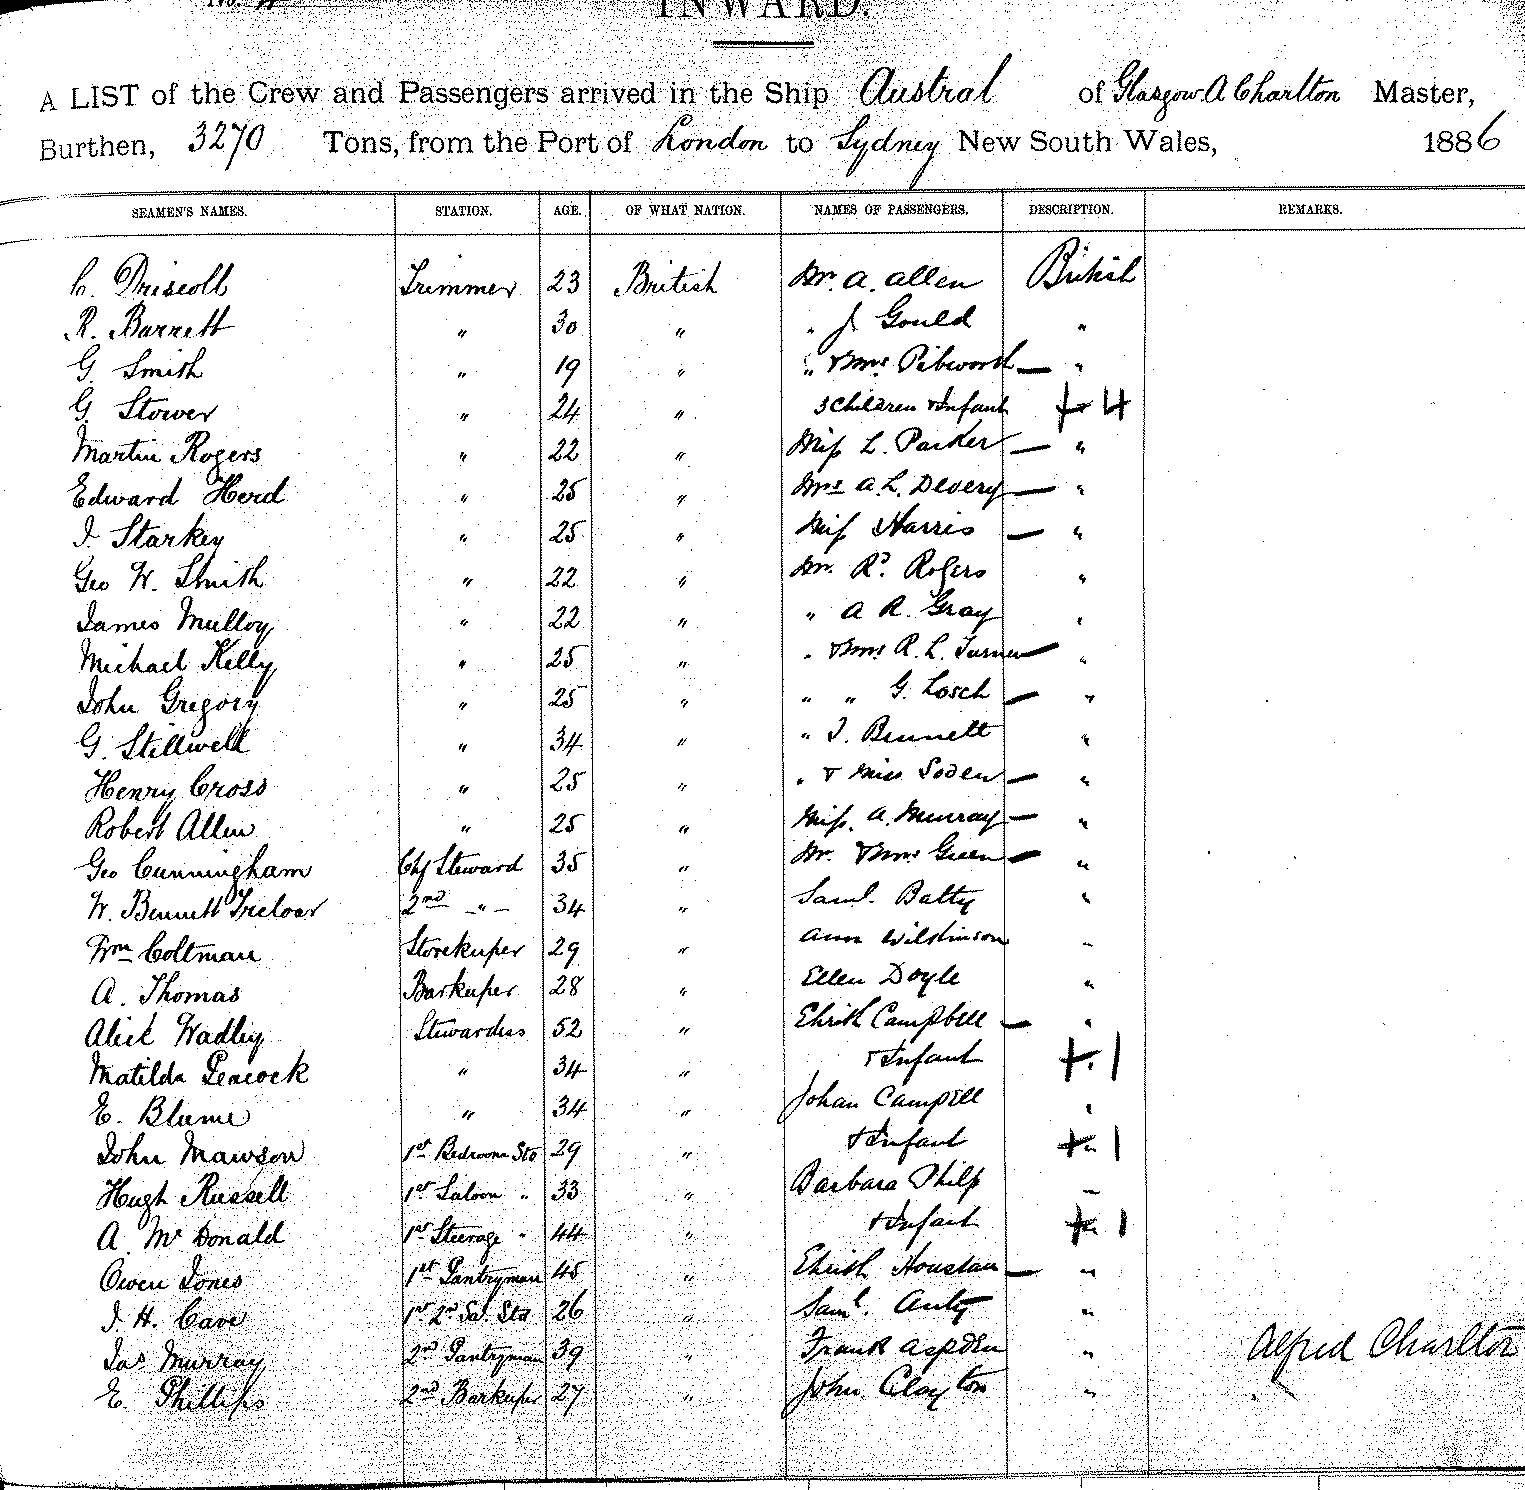 INWARD.
A LIST of the Crew and Passengers arrived in the Ship Austral of Glasgow A Charlton Master,
Burthen, 3270 Tons, from the Port of London to Sydney New South Wales, 1886
SEAMEN'S NAMES. STATION. AGE. OF WHAT NATION. NAMES OF PASSENGERS. DESCRIPTION. REMARKS.
C. Driscoll Trimmer 23 British Mr. A. Allen British
R. Barrett " 30 " " J Gould "
G Smith " 19 " " & Mrs Pibworth — "
G. Stower " 24 " 3 Children & Infant + 4
Martin Rogers " 22 " Miss L. Parker — "
Edward Herd " 25 " Mrs A. L. Devery — "
J. Starkey " 25 " Miss Harris — "
Geo W. Smith " 22 " Mr. Rd. Rogers "
James Mulloy " 22 " " A R. Gray "
Michael Kelly " 25 " " & Mrs R. L. Turner — "
John Gregory " 25 " " " G. Losch — "
G. Stillwell " 34 " " J. Bennett "
Henry Cross " 25 " " & Miss Soden — "
Robert Allen " 25 " Miss. A. Murray — "
Geo Cunningham Chf Steward 35 " Mr. & Mrs Green — "
W. Bennett Treloar 2nd — " — 34 " Saml. Batty "
Wm Coltman Storekeeper 29 " Ann Wilskinson "
A. Thomas Barkeeper 28 " Ellen Doyle "
Alick Wadley Stewardess 52 " Campbell — "
Matilda Peacock " 34 " & Infant + 1
E. Blume " 34 " Johan Campbell "
John Mawson 1st Bedroom Std 29 " & Infant + 1
Hugh Russell 1st Saloon " 33 " Barbara Philp "
A. McDonald 1st Steerage " 44 " & Infant + 1
Owen Jones 1st Pantryman 45 " Houstan — "
J. H. Cave 1st 2nd Sa. Std 26 " Saml. Auty "
Jas Murray 2nd Pantryman 39 " Frank Aspden "
E. Phillips 2nd Barkeeper 27 " John Clayton "
Alfred Charlton